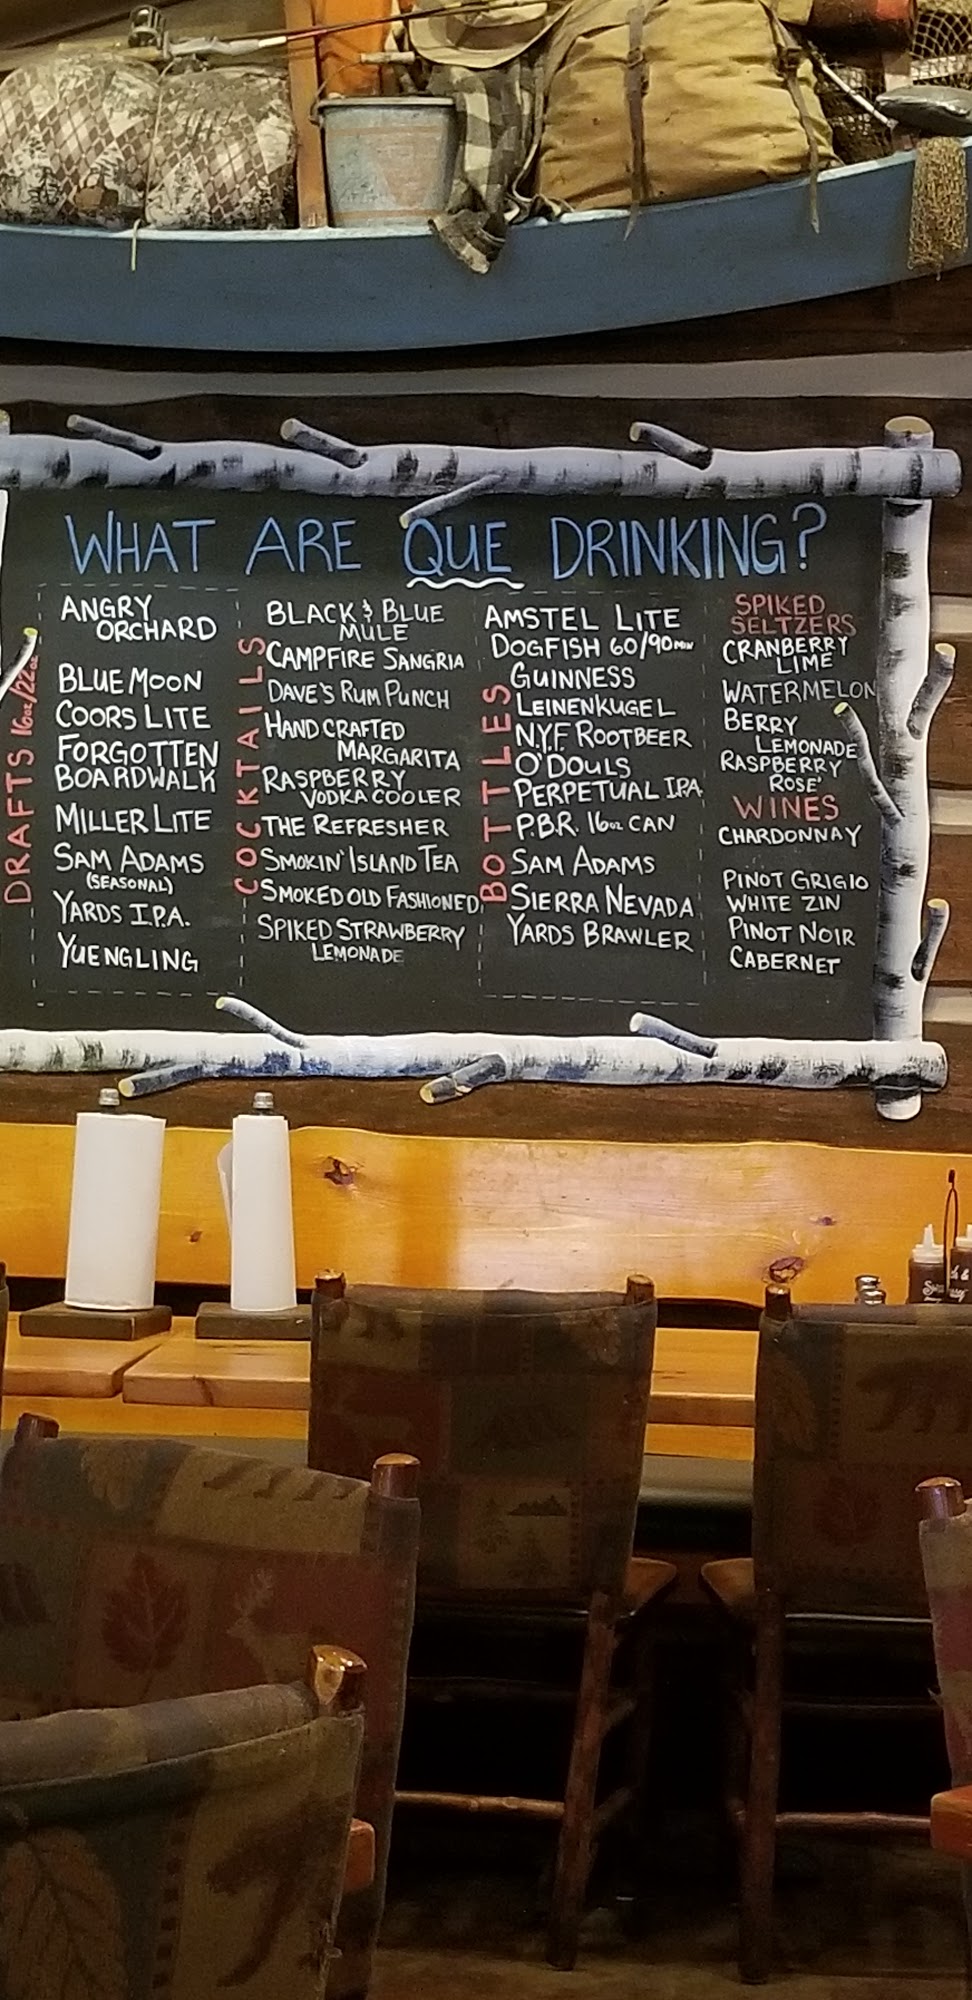 WHAT ARE QUE DRINKING?
DRAFTS 16oz/22oz
ANGRY
ORCHARD
BLUE MOON
COORS LITE
FORGOTTEN
BOARDWALK
MILLER LITE
SAM ADAMS
(SEASONAL)
YARDS I.P.A.
YUENGLING
COCKTAILS
BLACK & BLUE
MULE
CAMPFIRE SANGRIA
DAVE'S RUM PUNCH
HAND CRAFTED
MARGARITA
RASPBERRY
VODKA COOLER
THE REFRESHER
SMOKIN' ISLAND TEA
SMOKED OLD FASHIONED
SPIKED STRAWBERRY
LEMONADE
BOTTLES
AMSTEL LITE
DOGFISH 60/90MIN
GUINNESS
LEINENKUGEL
N.Y.F. ROOTBEER
O'DOULS
PERPETUAL IPA
P.B.R. 16oz CAN
SAM ADAMS
SIERRA NEVADA
YARDS BRAWLER
SPIKED
SELTZERS
CRANBERRY
LIME
WATERMELON
BERRY
LEMONADE
RASPBERRY
ROSE'
WINES
CHARDONNAY
PINOT GRIGIO
WHITE ZIN
PINOT NOIR
CABERNET